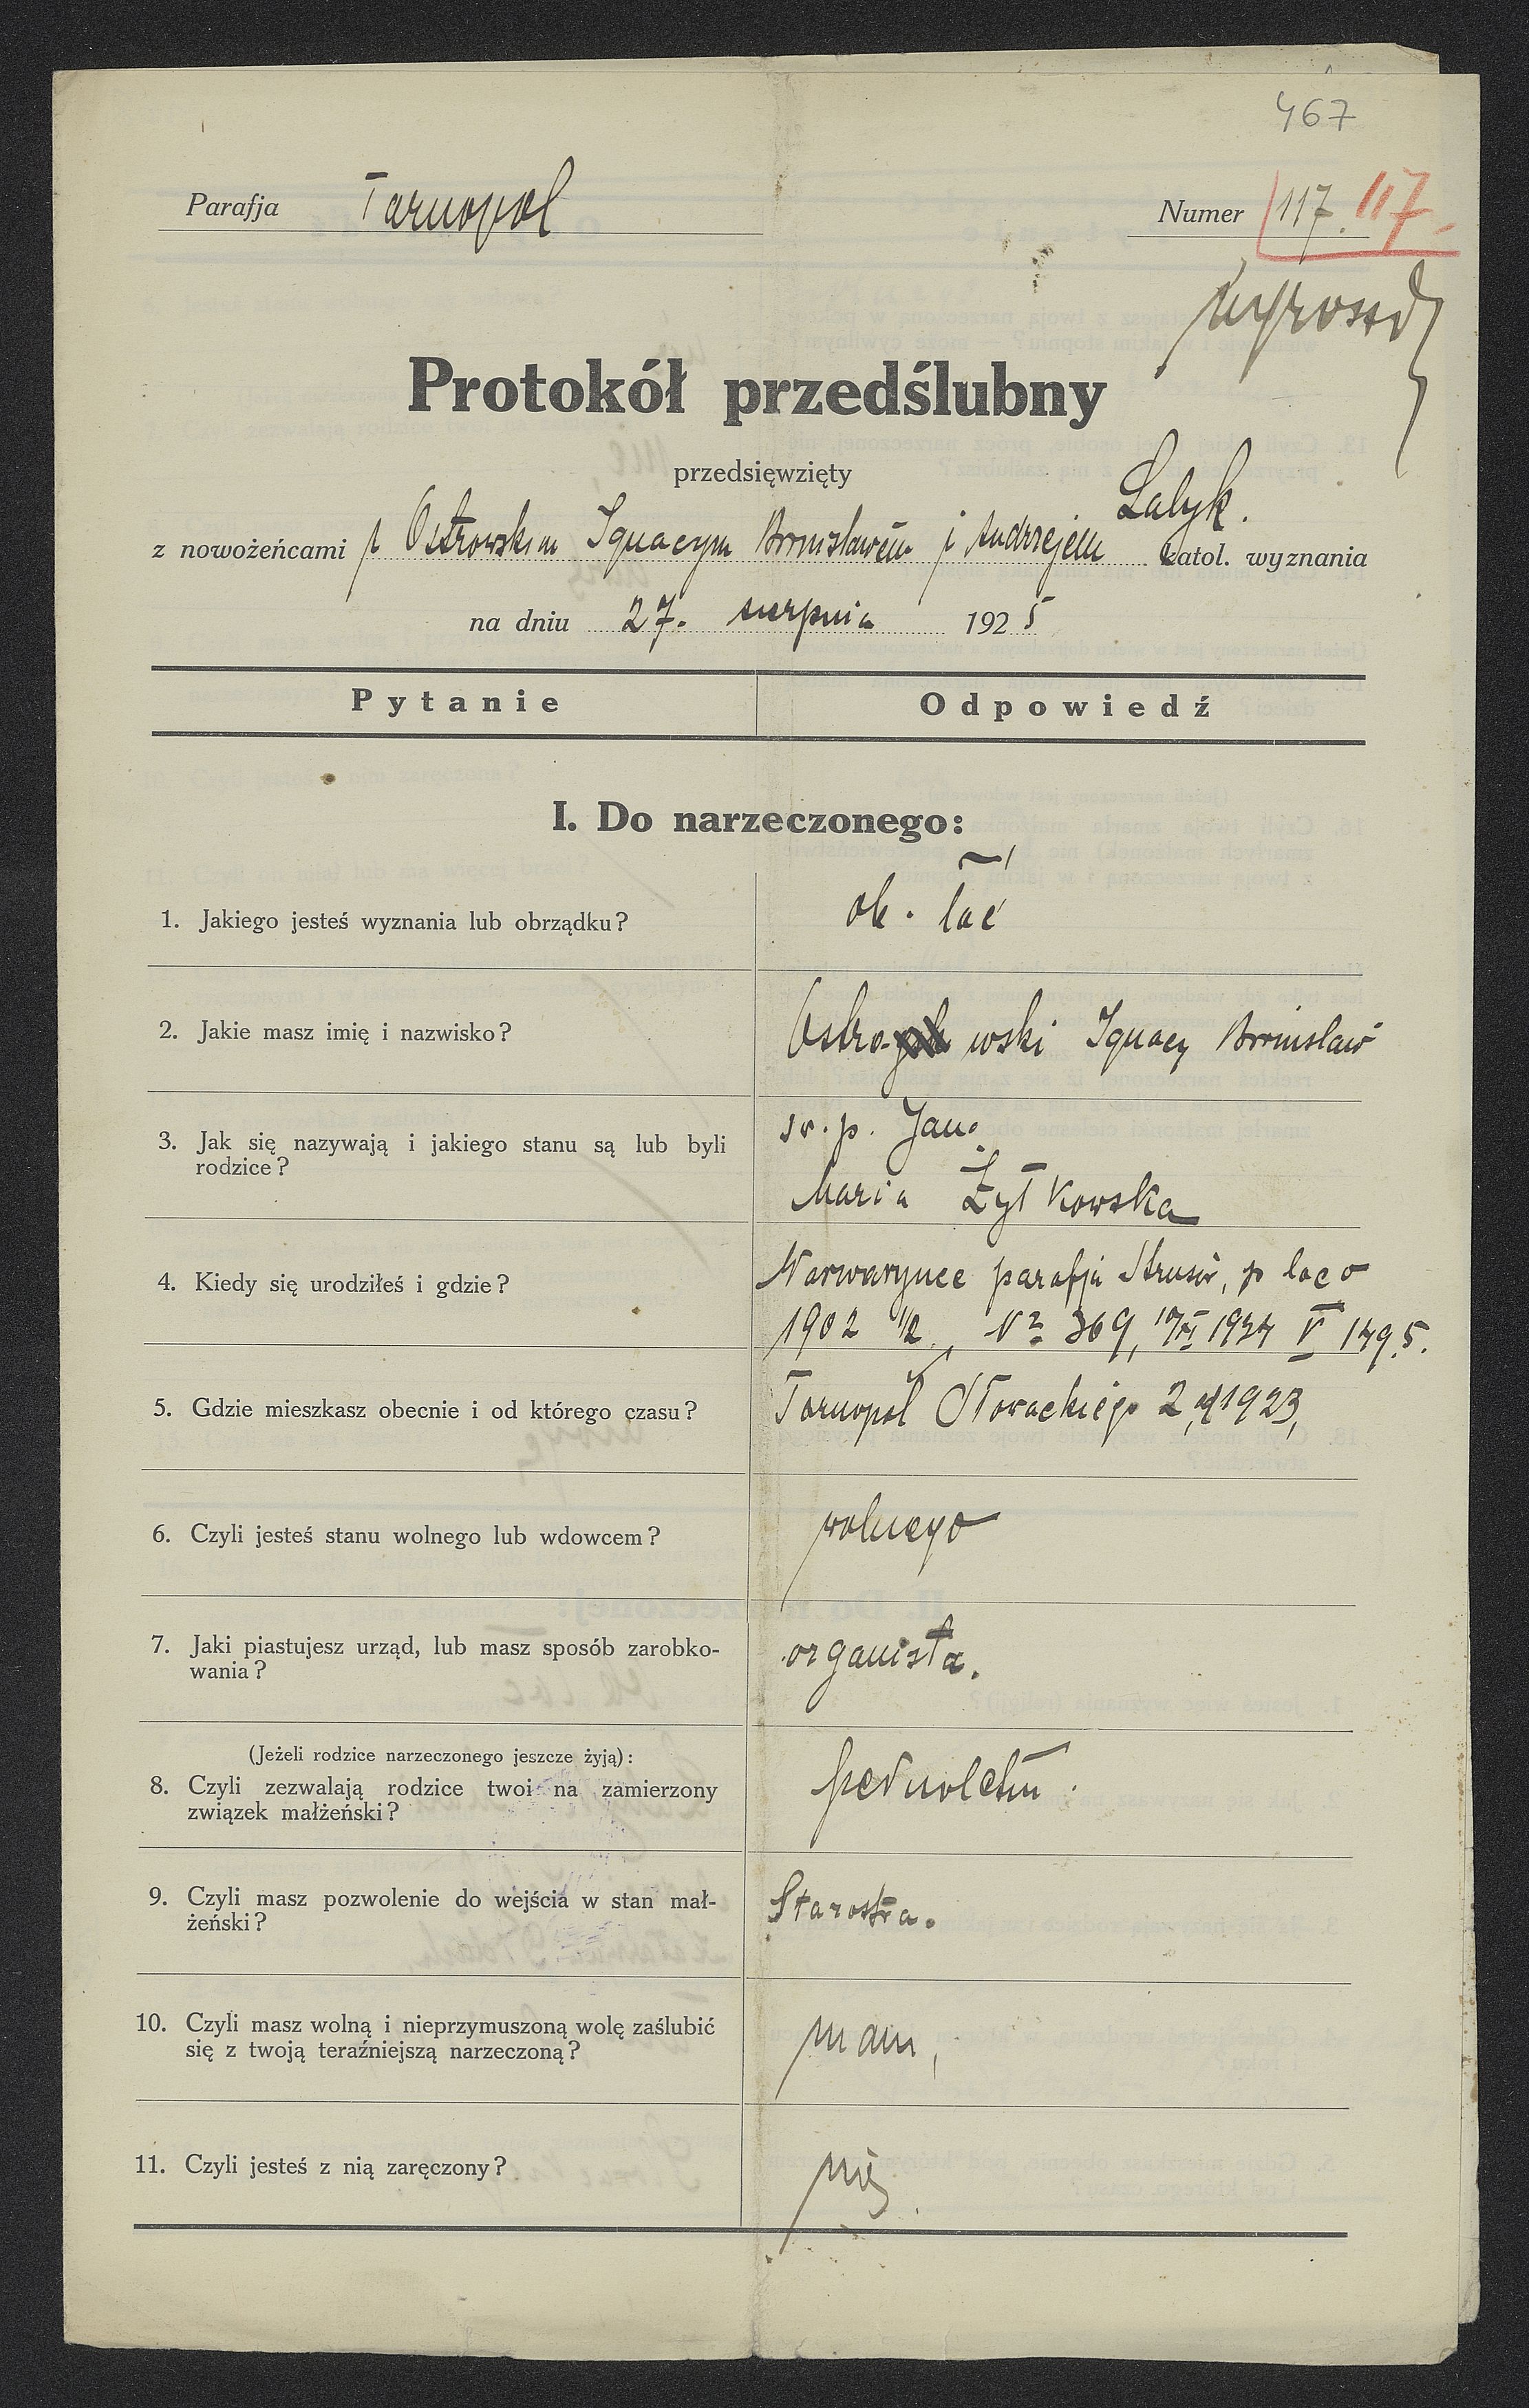 467
Parafja Tarnopol
Numer 117. 117.
Protokół przedślubny
przedsięwzięty
Łalyk.
z nowożeńcami p Ostrowskim Ignacym Bronisławem i Andrzejem katol. wyznania
na dniu 27. sierpnia 1925
Pytanie Odpowiedź
I. Do narzeczonego:
1. Jakiego jesteś wyznania lub obrządku? ob. łać
2. Jakie masz imię i nazwisko? Ostro wski Ignacy Bronisław
3. Jak się nazywają i jakiego stanu są lub byli śr. p. Jan.
rodzice? Maria Żytkowska
4. Kiedy się urodziłeś i gdzie? Warwaryńce parafja Strusów, p loco
1902 1/2. № 369, 1924 V 149.5.
5. Gdzie mieszkasz obecnie i od którego czasu? Tarnopol Słowackiego 2 od 1923,
6. Czyli jesteś stanu wolnego lub wdowcem? wolnego
7. Jaki piastujesz urząd, lub masz sposób zarobko-
wania? organista.
(Jeżeli rodzice narzeczonego jeszcze żyją):
8. Czyli zezwalają rodzice twoi na zamierzony
związek małżeński? pełnoletni.
9. Czyli masz pozwolenie do wejścia w stan mał-
żeński? Starostwa.
10. Czyli masz wolną i nieprzymuszoną wolę zaślubić
się z twoją teraźniejszą narzeczoną? mam,
11. Czyli jesteś z nią zaręczony? nie